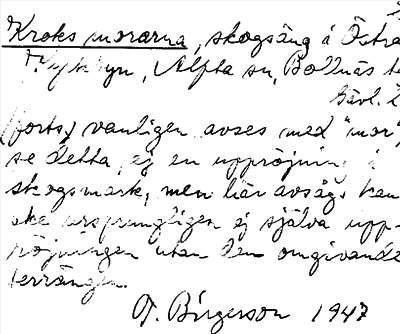 Kroks morarna, skogsäng i Östra
byn, Alfta sn, Bollnäs
Gävl. l
(forts) vanligen avses med "mor",
se detta, ej en uppröjning i
skogsmark, men här avsågs kan
ske ursprungligen ej själva upp-
röjningen utan den omgivande
terrängen.
T. Birgerson 1947